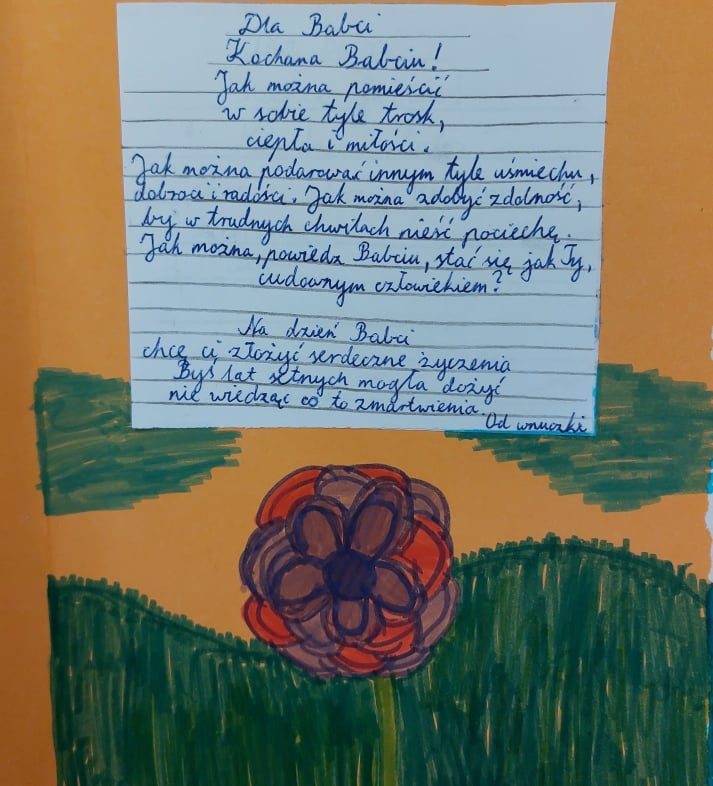 Dla Babci
Kochana Babciu!
Jak można pomieścić
w sobie tyle trosk,
ciepła i miłości.
Jak można podarować innym tyle uśmiechu,
dobroci i radości. Jak można zdobyć zdolność,
by w trudnych chwilach nieść pociechę.
Jak można, powiedz Babciu, stać się jak Ty,
cudownym człowiekiem?
Na dzień Babci
chcę ci złożyć serdeczne życzenia
Byś lat setnych mogła dożyć
nie wiedząc co to zmartwienia.
Od wnuczki